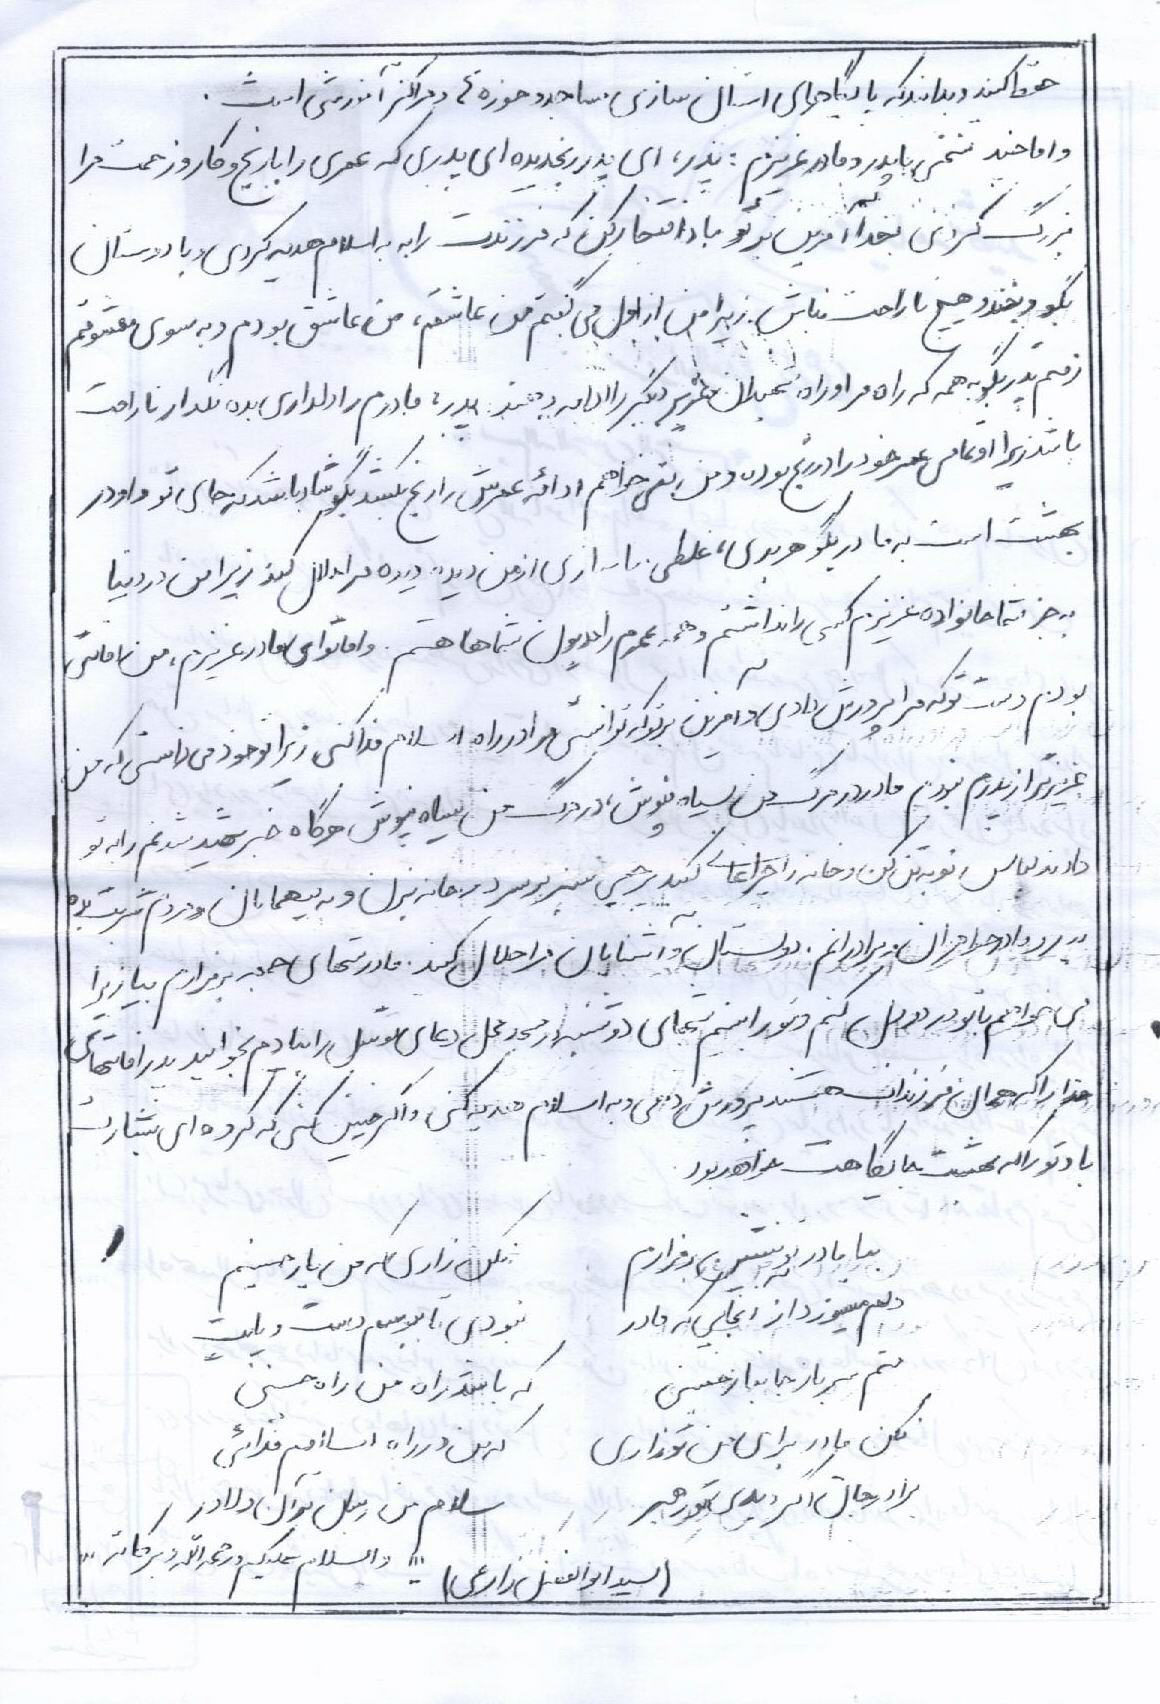 حفظ کنید و بدانید که پایگاههای انسان سازی مساجد و حوزه ها و مراکز آموزشی است .
و اما چند سخنی با پدر و مادر عزیزم : پدر، ای پدر رنجدیده ای پدری که عمری را با رنج و کار و زحمت مرا
بزرگ کردی بخدا آفرین بر تو باد افتخار کن که فرزندت را به اسلام هدیه کردی و با دوستان
بگو و بخند و هیچ ناراحت نباش. زیرا من از اول می گفتم من عاشقم، من عاشق بودم و به سوی معشوقم
رفتم پدر بگو به همه که راه مرا و راه شهیدان عزیز دیگر را ادامه بدهند. پدر، مادرم را دلداری بده نگذار ناراحت
باشد زیرا او تمامی عمر خود را در رنج بوده و من نمی خواهم ادامه عمرش را رنج بکشد بگو شاد باشد که جای تو و او در
بهشت است به مادر بگو هر بدی، غلطی، از من دیده مرا حلال کند زیرا من در دنیا
به جز شما خانواده عزیزم کسی را نداشتم و همه عمرم را مدیون شماها هستم. و اما تو ای مادر عزیزم، من امانتی
بودم دست تو که مرا پرورش دادی و آفرین بر تو که توانستی مرا در راه اسلام فدا کنی زیرا تو خود می دانستی که من
عزیزتر از پدرم نبودم مادر در مرگ من سیاه نپوش، در مرگ من سیاه نپوش هرگاه خبر شهید شدنم را به تو
دادند لباس نو به تن کن و خانه را چراغانی کنید پرچمی سبز بر سر در خانه بزن و به میهمانان و مردم شربت بده
پدر و مادر خواهران و برادرانم، دوستان و آشنایان مرا حلال کنند. مادر شبهای جمعه بر مزارم بیا زیرا
می خواهم با تو درد دل کنم و تو را ببینم شبهای دوشنبه در مسجد محل دعای توسل را بیادم بخوانید پدر امانتهای
خدا را که همان فرزندانت هستند پرورش دهی و به اسلام هدیه کنی و اگر چنین کنی که کرده ای بشارت
باد تو را که بهشت جایگاهت خواهد بود
بیا مادر تو بنشین بر مزارم   نکن زاری که من یار حسینم
دلم میسوزد از آنجایی که مادر   نبودی تا ببوسم دست و پایت
منم سرباز جانباز خمینی   که باشد راه من راه حسینی
نکن مادر برای من تو زاری   که من در راه اسلامم فدائی
برادر جان اگر دیدی تو رهبر   سلام من رسان تو آن دلاور
والسلام علیکم و رحمه الله و برکاته
(سید ابوالفضل زارعی)